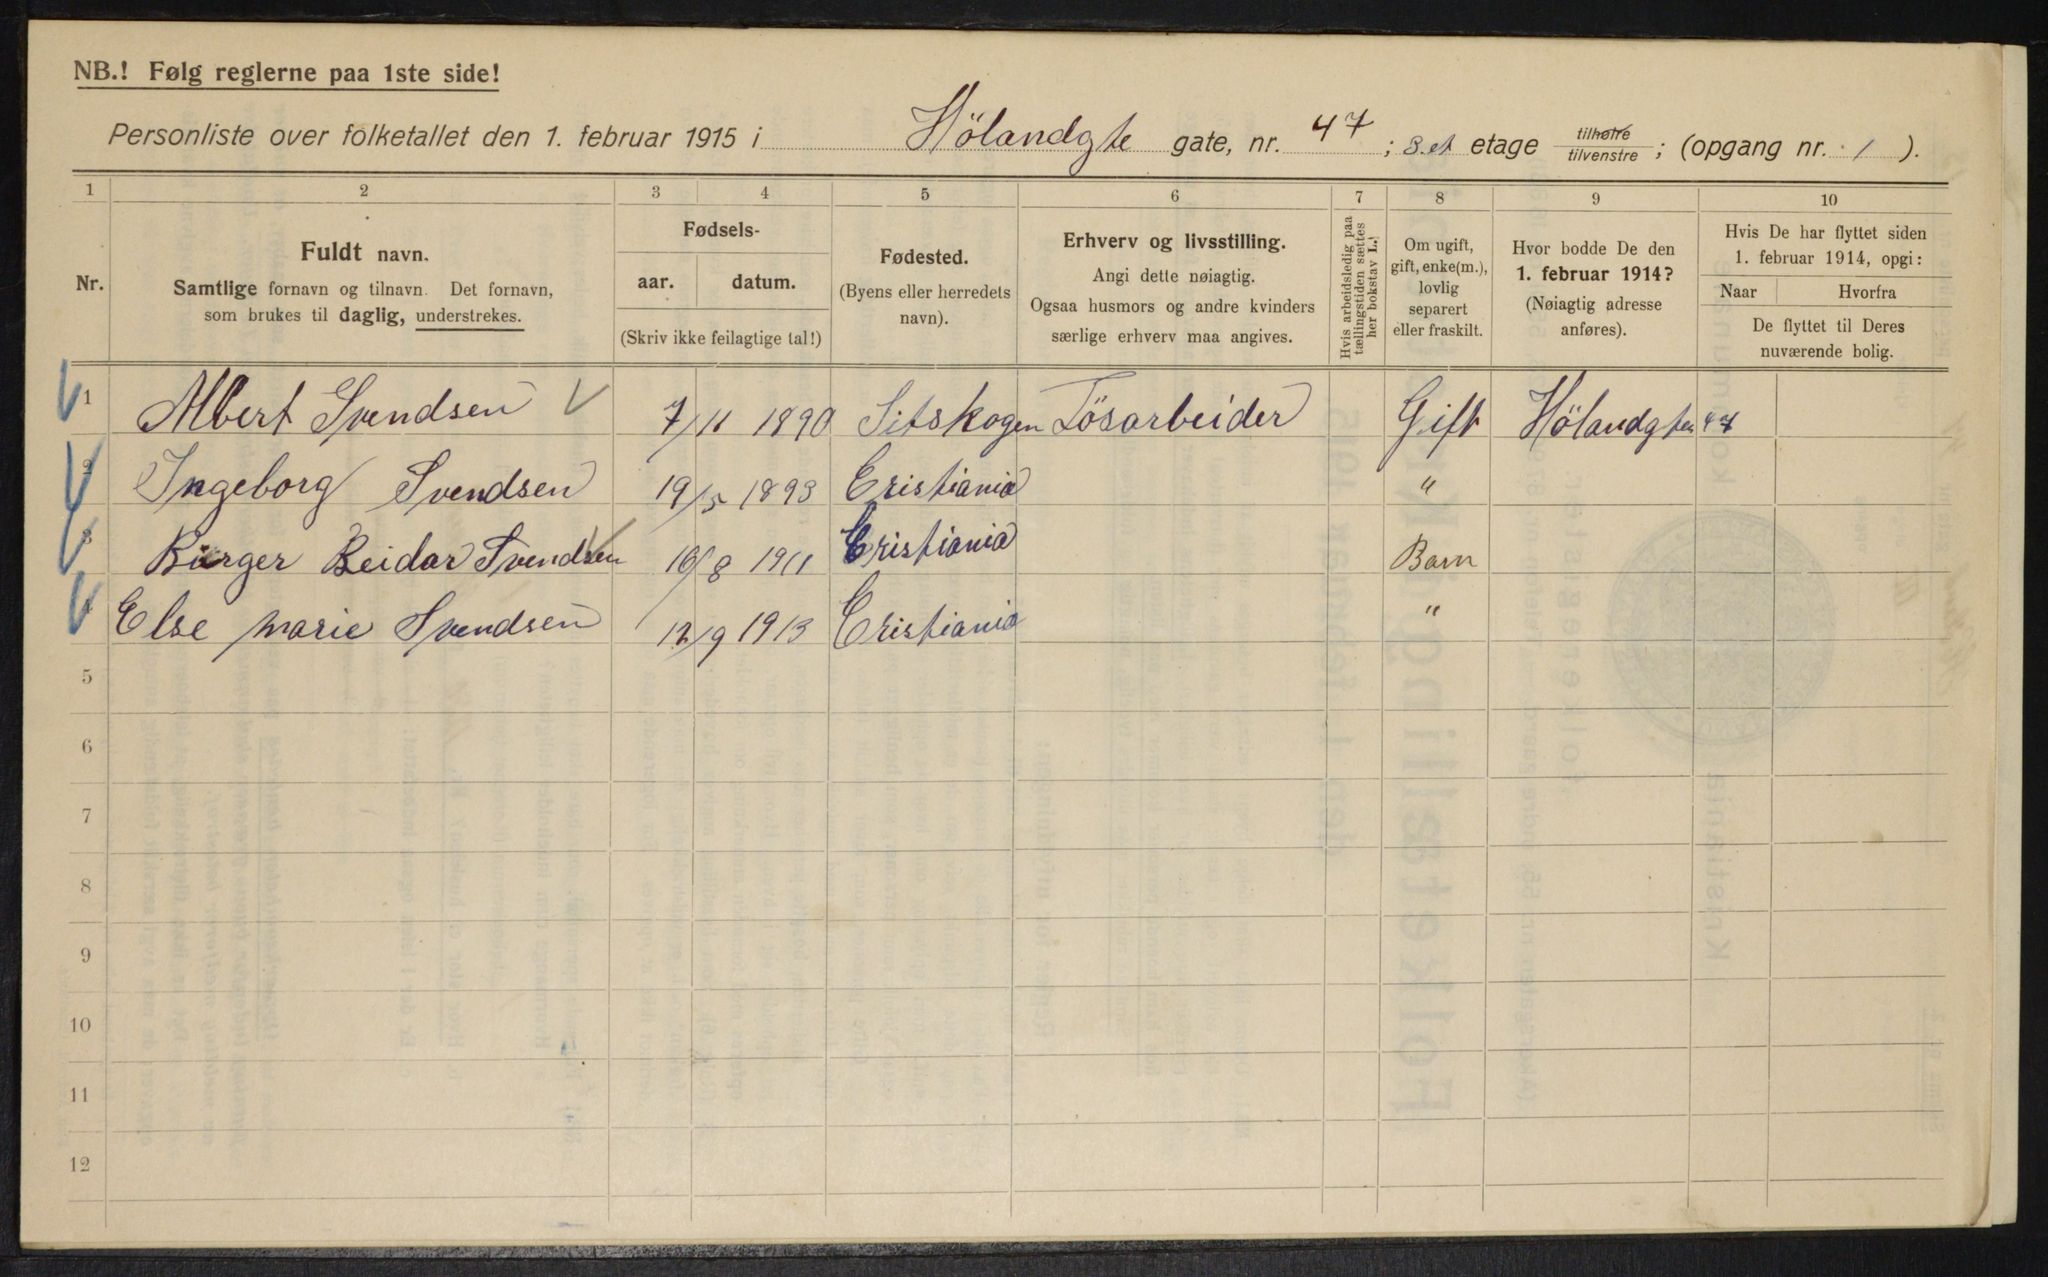 NB.! Følg reglerne paa 1ste side!
Personliste over folketallet den 1. februar 1915 i Hölandgte gate, nr. 47 ; 3.et etage tilhøire / tilvenstre ; (opgang nr. 1 ).
1 2 3 4 5 6 7 8 9 10
Nr.
Fuldt navn.
Samtlige fornavn og tilnavn. Det fornavn,
som brukes til daglig, understrekes.
Fødsels-
aar. datum.
(Skriv ikke feilagtige tal!)
Fødested.
(Byens eller herredets
navn).
Erhverv og livsstilling.
Angi dette nøiagtig.
Ogsaa husmors og andre kvinders
særlige erhverv maa angives.
Hvis arbeidsledig paa
tællingstiden sættes
her bokstav L.!
Om ugift,
gift, enke(m.),
lovlig
separert
eller fraskilt.
Hvor bodde De den
1. februar 1914?
(Nøiagtig adresse
anføres).
Hvis De har flyttet siden
1. februar 1914, opgi:
Naar Hvorfra
De flyttet til Deres
nuværende bolig.
1 Albert Svendsen 7/11 1890 Sitskogen Lösarbeider Gift Hölandgten 47
2 Ingeborg Svendsen 19/5 1893 Cristiania "
3 Birger Reidar Svendsen 16/8 1911 Cristiania Barn
4 Else Marie Svendsen 12/9 1913 Cristiania "
5
6
7
8
9
10
11
12